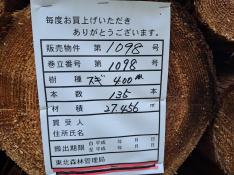 毎度お買上げいただき
ありがとうございます。
販売物件 第 1098 号
巻立番号 第 1098 号
樹種 スギ 4.00m
本数 135 本
材積 27.456 m
買受人
住所氏名
搬出期限 自 平成 年 月 日
至 平成 年 月 日
東北森林管理局